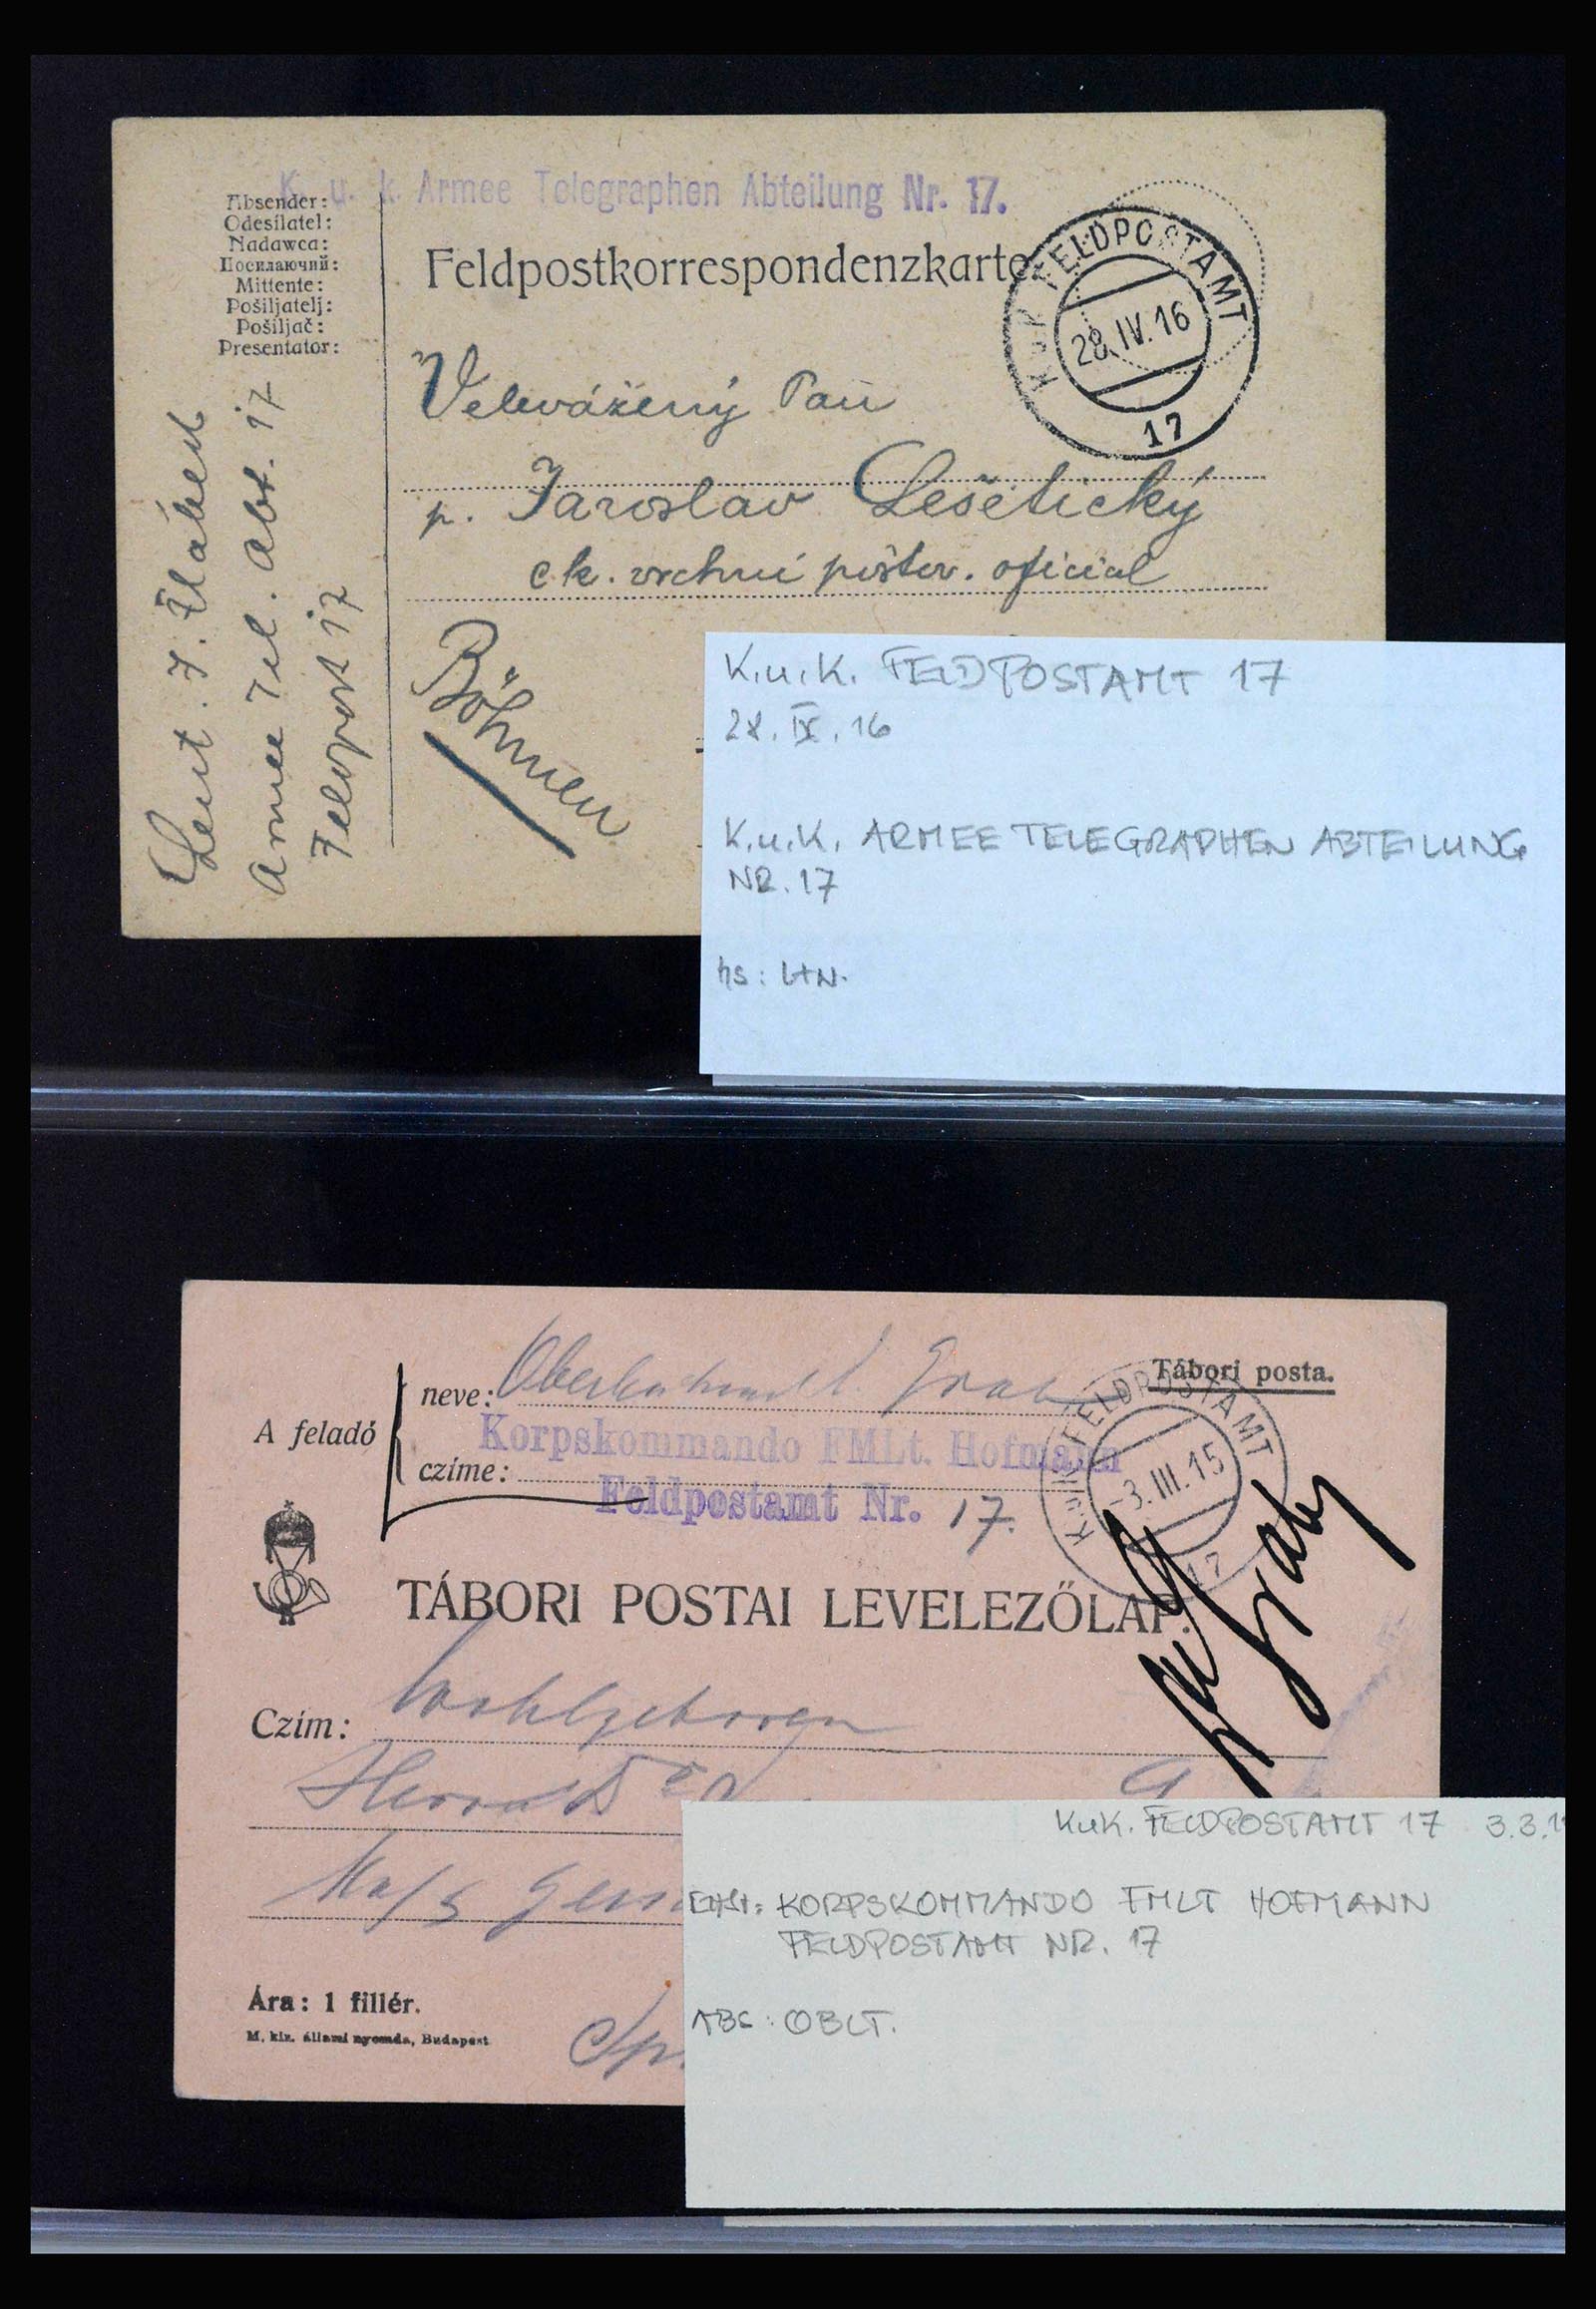 K. u. k. Armee Telegraphen Abteilung Nr. 17.
Absender:
Odesílatel:
Nadawca:
Посилаючий:
Mittente:
Pošiljatelj:
Pošiljač:
Presentator:
Feldpostkorrespondenzkarte
K.u.K. FELDPOSTAMT
28. IV. 16
17
Velevážený Pan
p. Jaroslav Lešetický
c.k. vrchní poštov. oficial
Böhmen
Leut. J.
Armee Tel. Abt. 17
Feldpost 17
K.u.K. FELDPOSTAMT 17
28. IV. 16
K.u.K. ARMEE TELEGRAPHEN ABTEILUNG
NR. 17
hs: LtN.
Tábori posta.
A feladó
neve:
czíme:
Korpskommando FMLt. Hofmann
Feldpostamt Nr. 17.
K.u.K. FELDPOSTAMT
-3. III. 15
17
TÁBORI POSTAI LEVELEZŐLAP.
Czím: Wohlgeboren
Herrn Dr
Ára: 1 fillér.
M. kir. állami nyomda, Budapest
KuK. FELDPOSTAMT 17 3.3.1
KORPSKOMMANDO FMLT HOFMANN
FELDPOSTAMT NR. 17
ABS: OBLT.